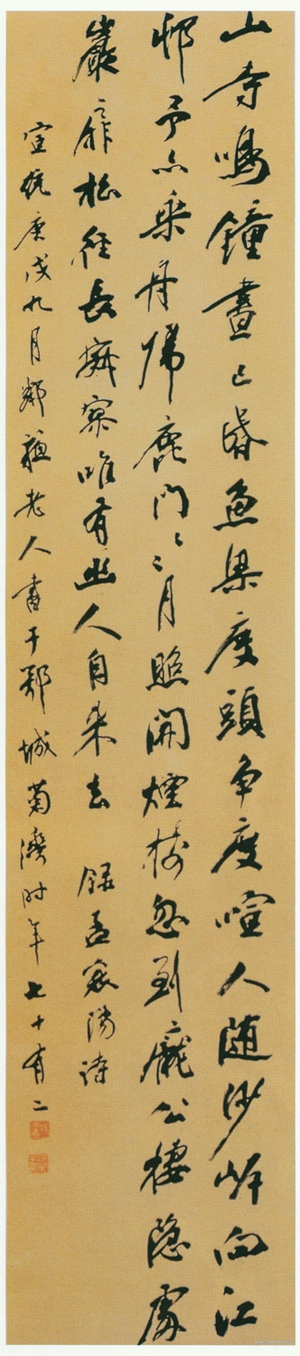 山寺鳴鐘晝已昏魚梁度頭爭度喧人随沙岸向江
邨予亦乘舟歸鹿門〻〻月照開煙樹忽到龐公棲隱處
巖扉松徑長寂寥唯有幽人自来去 録孟襄陽詩
宣統庚戌九月鄰蘇老人書于鄂城菊灣时年七十有二